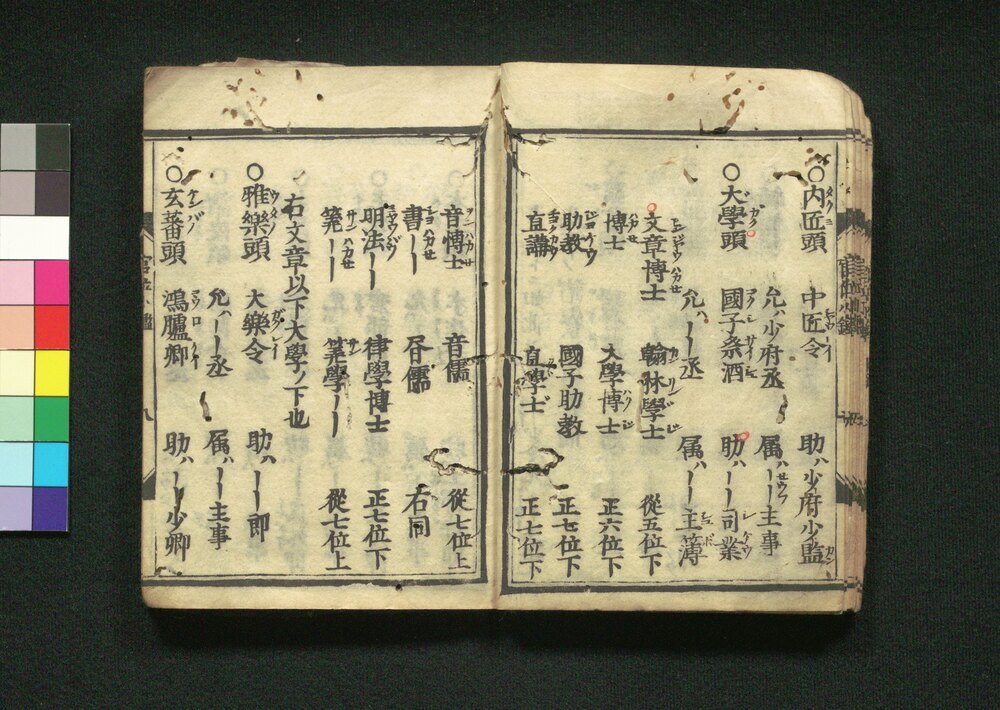 ○内匠頭 中匠令 助ハ少府少監
允ハ少府丞 属ハ――主事
○大學頭 國子祭酒 助ハ――司業
允ハ――丞 属ハ――主薄
文章博士 翰林學士 從五位下
博士 大學博士 正六位下
助教 國子助教 正七位下
直講 直學士 正七位下
音博士 音儒 從七位上
書―― 儒 右同
明法―― 律學博士 正七位下
筭―― 筭學―― 從七位上
右文章以下大學ノ下也
○雅樂頭 大樂令 助ハ――郎
允ハ――丞 属ハ――主事
○玄蕃頭 鴻臚卿 助ハ――少卿